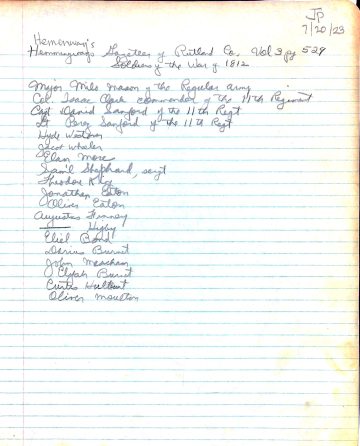 JP
7/20/23
Hemenway's
Hemmingways Gazateer of Rutland Co, Vol 3 pg 529
Soldiers of the War of 1812
Major Milo Mason of the Regular army
Col. Isaac Clark commander of the 11th Regiment
Capt David Sanford of the 11th Regt
Lt Perez Sanford of the 11th Regt
Hyde Westover
Jacob Whaler
Elan More
Sam'l Shephard, sergt
Theodore
Jonathan Eaton
Oliver Eaton
Augustus Finney
Higby
Eliel Bond
Darius Burnit
John Meacham
Elijah Burnit
Curtis Hulburt
Oliver Moulton